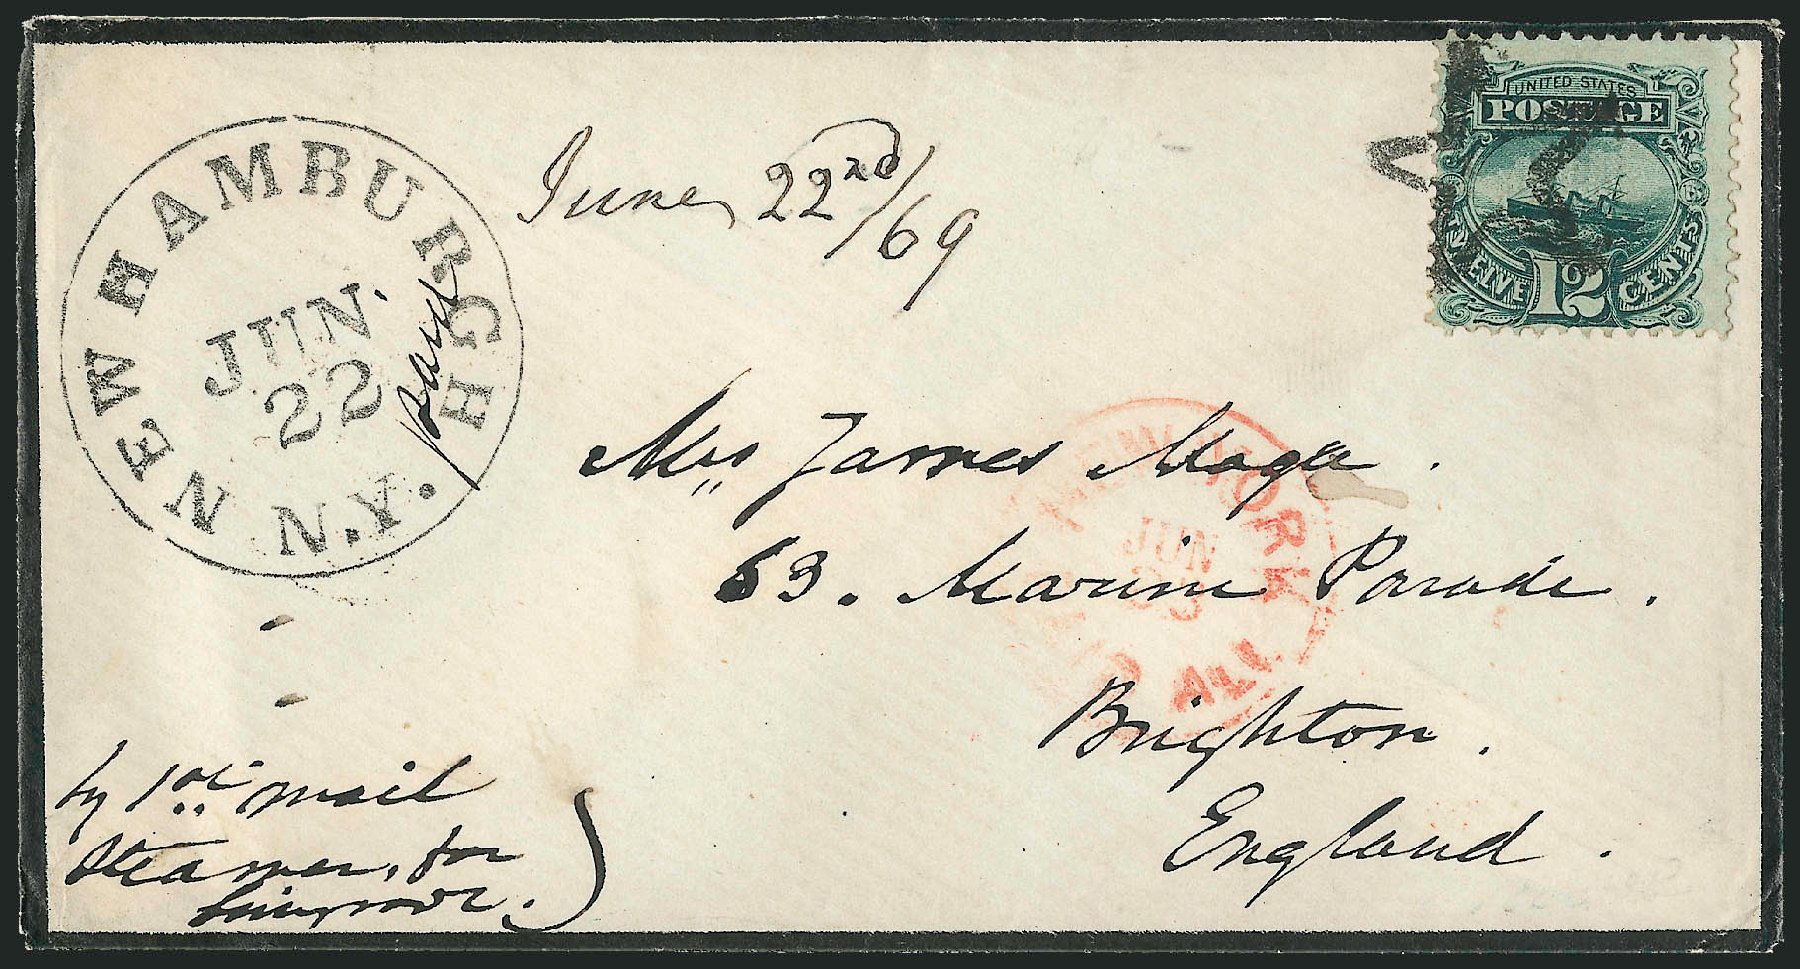 NEW HAMBURGH
JUN.
22
N.Y.
paid
June 22nd/69
UNITED STATES
POSTAGE
TWELVE 12 CENTS
Mrs James Magee.
63. Marine Parade.
Brighton.
England.
NEW YORK
JUN
ALL
by 1st mail
Steamer, for
Liverpool.